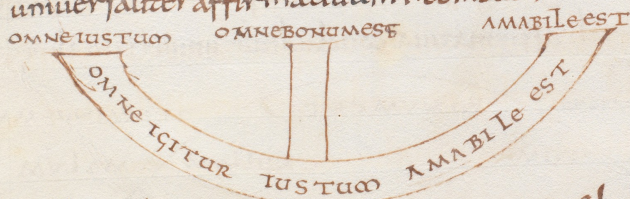 universaliter affirmativum
OMNE IUSTUM OMNE BONUM ESSE AMABILE EST
OMNE IGITUR IUSTUM AMABILE EST